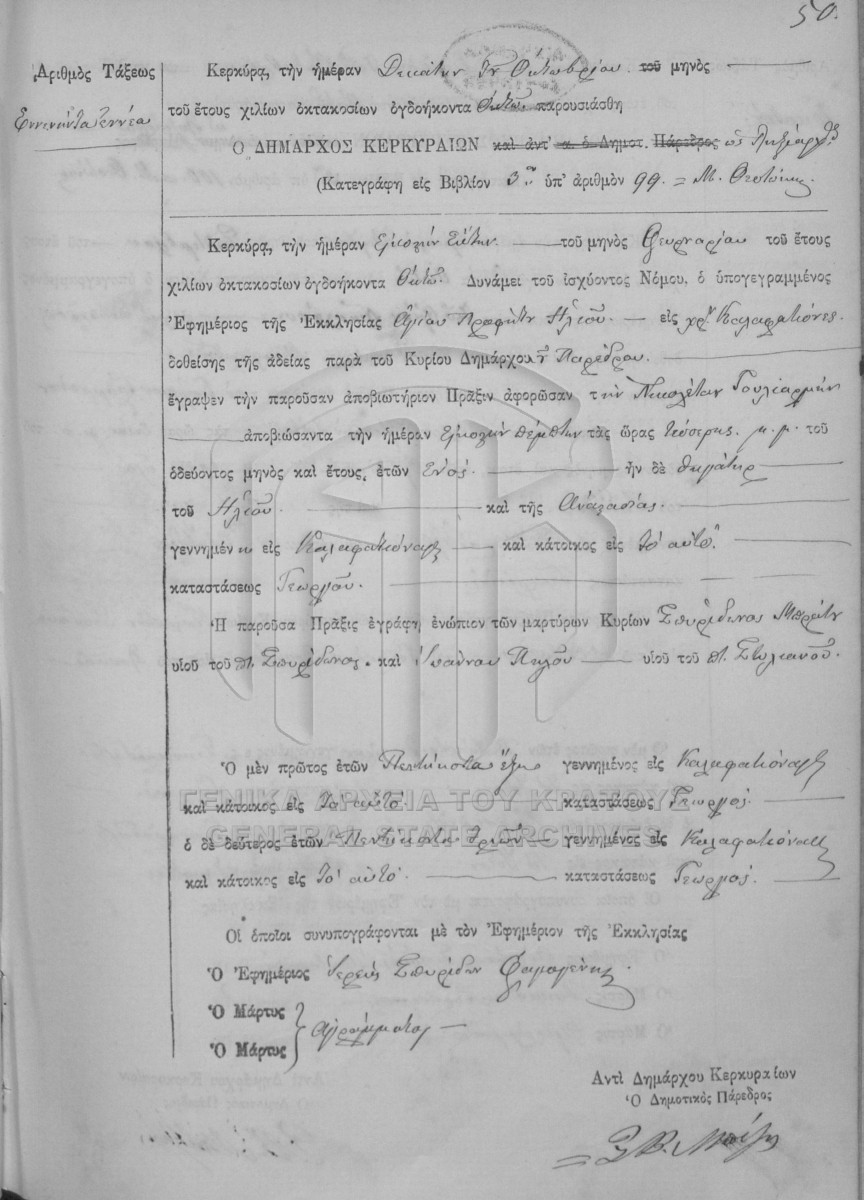 50.
Ἀριθμὸς Τάξεως
Ἐννενήντα ἐννέα
Κερκύρᾳ, τὴν ἡμέραν Δεκάτην τοῦ Ὀκτωβρίου τοῦ μηνὸς
τοῦ ἔτους χιλίων ὀκτακοσίων ὀγδοήκοντα Ὀκτώ παρουσιάσθη
Ὁ ΔΗΜΑΡΧΟΣ ΚΕΡΚΥΡΑΙΩΝ καὶ ἀντ' α. ὁ Δημοτ. Πάρεδρος ὡς
(Κατεγράφη εἰς Βιβλίον 3ον ὑπ' ἀριθμὸν 99 = Μ. Θεοτόκης
Κερκύρᾳ, τὴν ἡμέραν Εἰκοστήν Ἕκτην τοῦ μηνὸς Φευρουαρίου τοῦ ἔτους
χιλίων ὀκτακοσίων ὀγδοήκοντα Ὀκτώ. Δυνάμει τοῦ ἰσχύοντος Νόμου, ὁ ὑπογεγραμμένος
Ἐφημέριος τῆς Ἐκκλησίας Ἁγίου Προφήτου Ἠλιοῦ. εἰς χρ. Καλαφατιόνες.
δοθείσης τῆς ἀδείας παρὰ τοῦ Κυρίου Δημάρχου ἢ Παρέδρου.
ἔγραψεν τὴν παροῦσαν ἀποβιωτήριον Πρᾶξιν ἀφορῶσαν τὴν Νικολέταν Γουλιαρμήν
ἀποβιώσαντα τὴν ἡμέραν Εἰκοστήν πέμπτην τὰς ὥρας τέσσερης. μ. μ. τοῦ
ὁδεύοντος μηνὸς καὶ ἔτους, ἐτῶν Ἑνός. ἦν δὲ θυγάτηρ
τοῦ Ἠλιοῦ. καὶ τῆς Ἀναστασίας.
γεννημέν η εἰς Καλαφατιόναις καὶ κάτοικος εἰς τὸ αὐτό.
καταστάσεως Γεωργοῦ.
Ἡ παροῦσα Πρᾶξις ἐγράφη ἐνώπιον τῶν μαρτύρων Κυρίων Σπυρίδωνος
υἱοῦ τοῦ π. Σπυρίδωνος. καὶ Ἰωάννου υἱοῦ τοῦ π. Στυλιανοῦ.
Ὁ μὲν πρῶτος ἐτῶν Πεντήκοντα ἕξη γεννημένος εἰς Καλαφατιόναις
καὶ κάτοικος εἰς τὸ αὐτό καταστάσεως Γεωργός.
ὁ δὲ δεύτερος ἐτῶν Πεντήκοντα τριῶν γεννημένος εἰς Καλαφατιόναις
καὶ κάτοικος εἰς τὸ αὐτό. καταστάσεως Γεωργός.
Οἱ ὁποῖοι συνυπογράφονται μὲ τὸν Ἐφημέριον τῆς Ἐκκλησίας
Ὁ Ἐφημέριος Ἱερεύς Σπυρίδων
Ὁ Μάρτυς
Ὁ Μάρτυς
Ἀγράμματοι
Ἀντὶ Δημάρχου Κερκυραίων
Ὁ Δημοτικὸς Πάρεδρος
ΓΕΝΙΚΑ ΑΡΧΕΙΑ ΤΟΥ ΚΡΑΤΟΥΣ
GENERAL STATE ARCHIVES